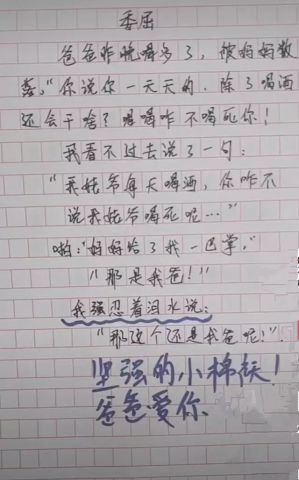 委屈
爸爸昨晚喝多了，被妈妈数
落。“你说你一天天的，除了喝酒
还会干啥？喝喝咋不喝死你！
我看不过去说了一句：
“我姥爷每天喝酒，你咋不
说我姥爷喝死呢…”
啪：“妈妈给了我一巴掌。”
“那是我爸！”
我强忍着泪水说：
“那这个还是我爸呢！”
坚强的小棉袄！
爸爸爱你